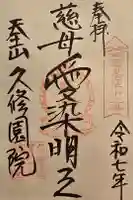 奉拝
令和七年
慈母愛染明王
天王山久修園院